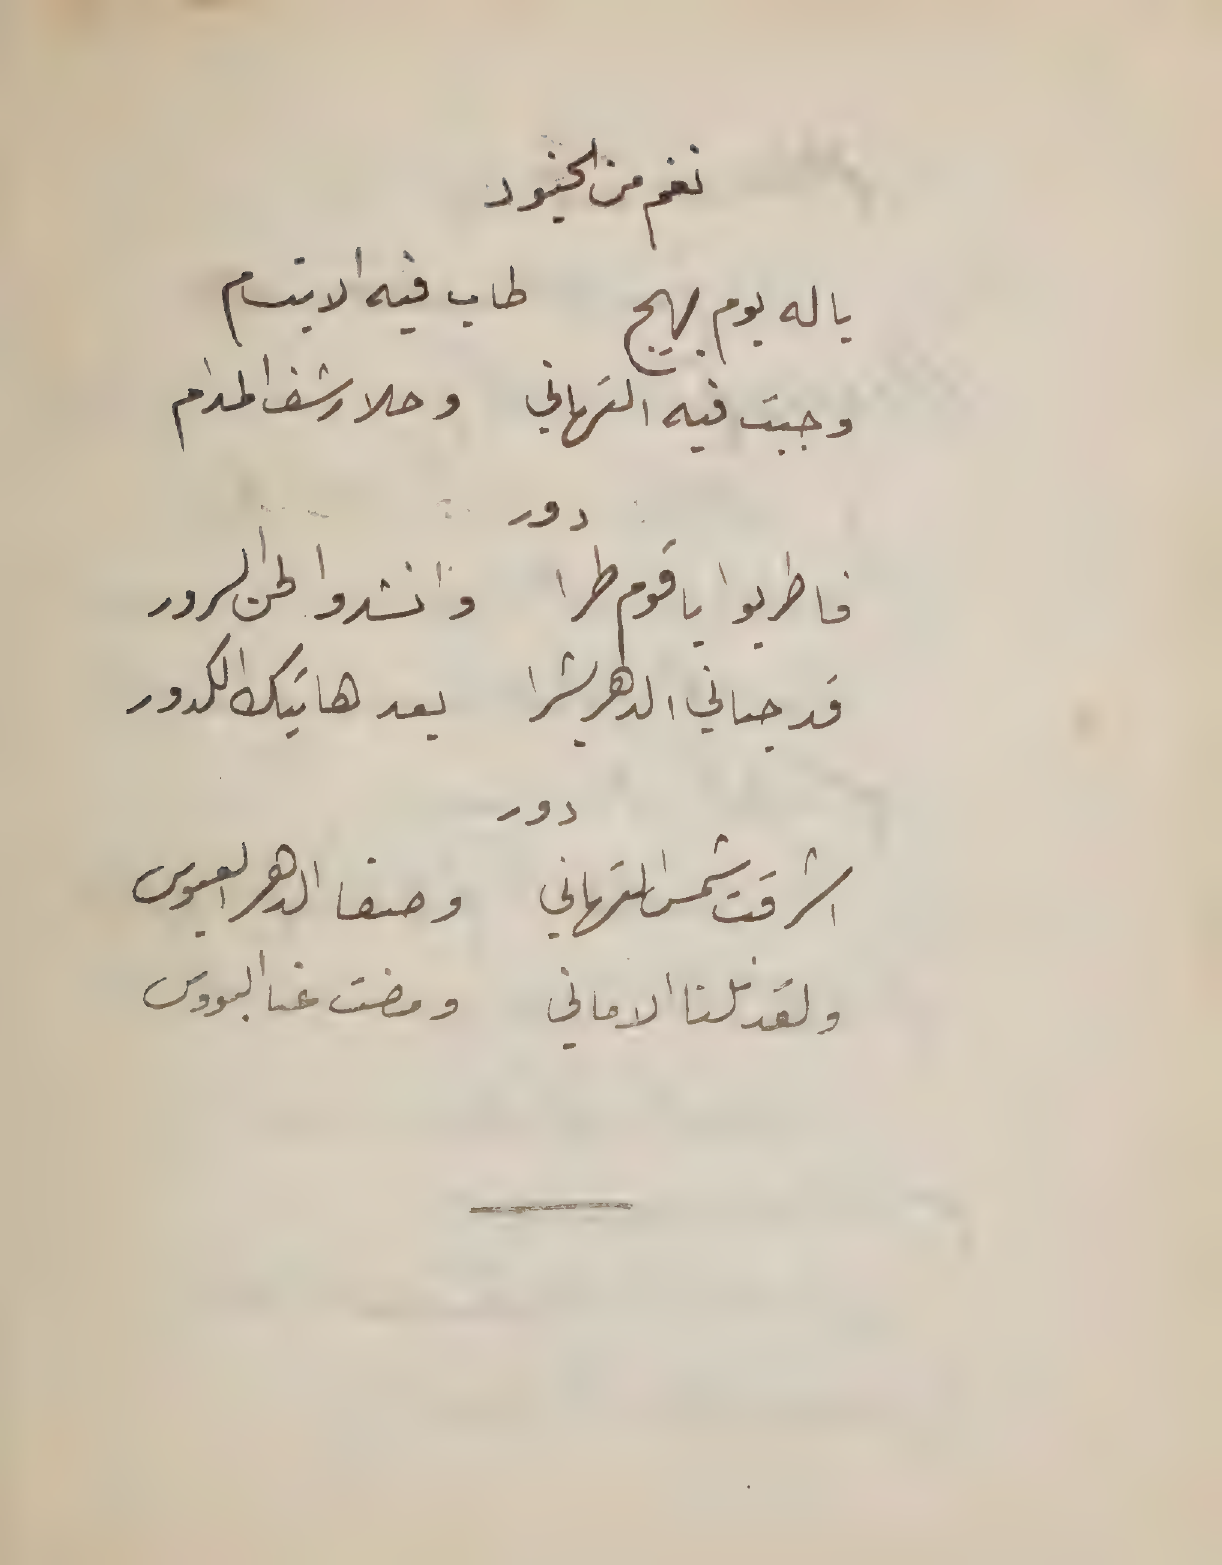 نغم من الجنود
يا له يوم بهيج طاب فيه الابتسام
وجبت فيه التهاني وحلا رشف المدام
دور
فاطربوا يا قوم طرا وانشدوا لحن السرور
قد حباني الدهر بشرا بعد هاتيك الكدور
دور
اشرقت شمس التهاني وصفا الدهر العبوس
ولقد نلنا الاماني ومضت عنا البووس